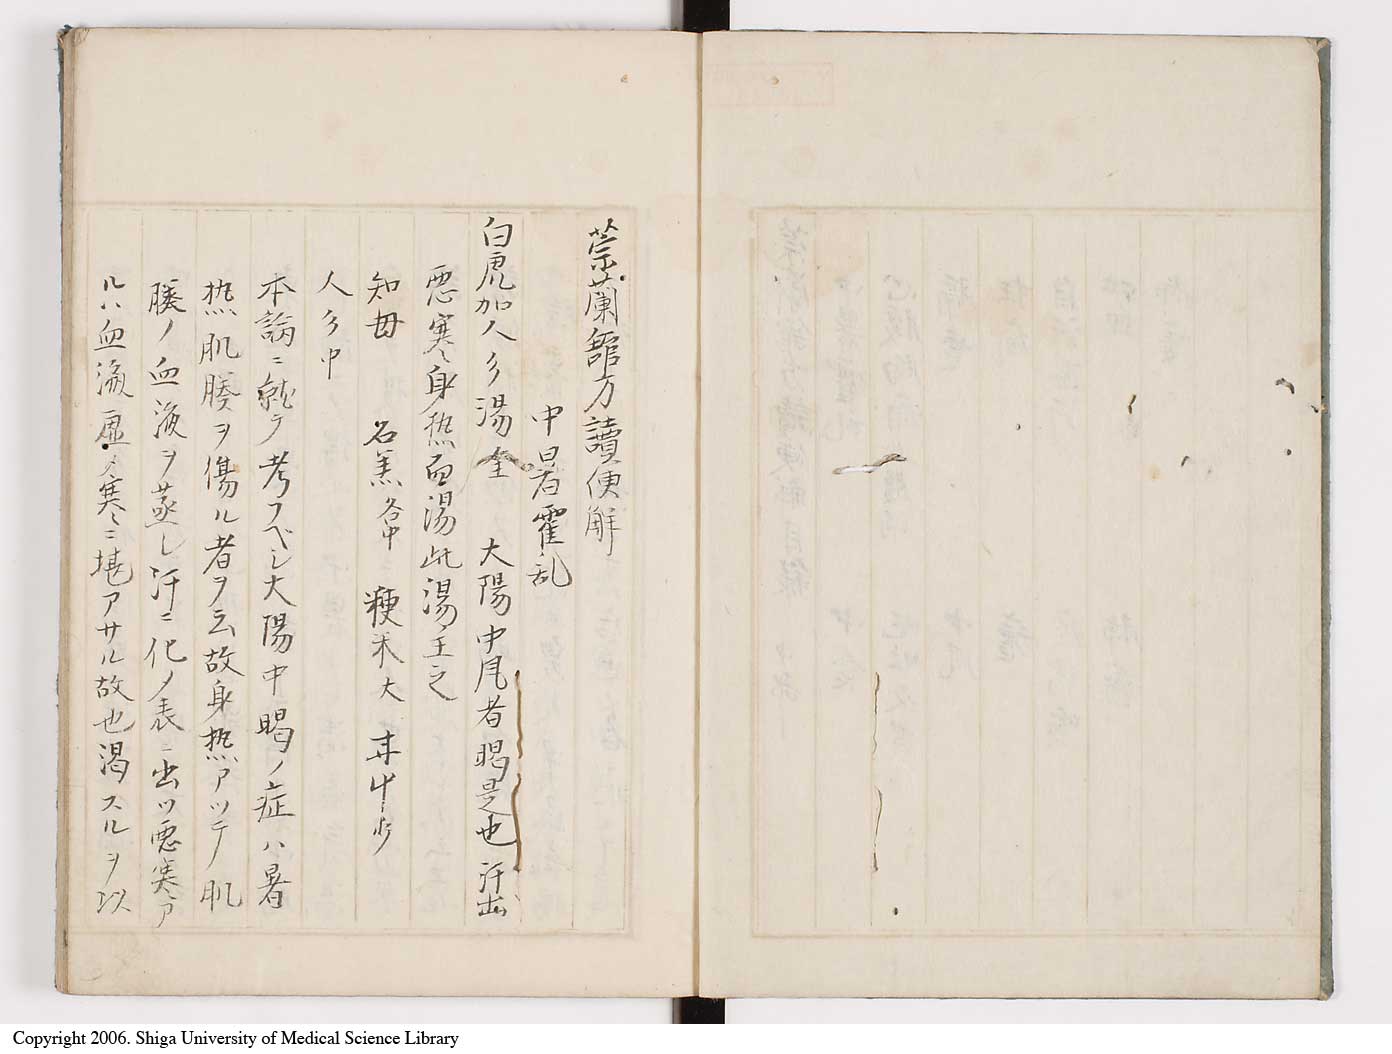 崇蘭館方讀便解
中暑霍乱
白虎加人参湯 金 大陽中風者暍是也汗出
悪寒身热而渇此湯主之
知母 石羔各中 粳米大 甘艸少
人参中
本論ニ就テ考フベシ大陽中暍ノ症ハ暑
热肌腠ヲ傷ル者ヲ云故身热アツテ肌
腠ノ血液ヲ蒸し汗ニ化ノ表ニ出ツ悪寒ア
ルハ血液虚ノ寒ニ堪アサル故也渇スルヲ以
Copyright 2006. Shiga University of Medical Science Library